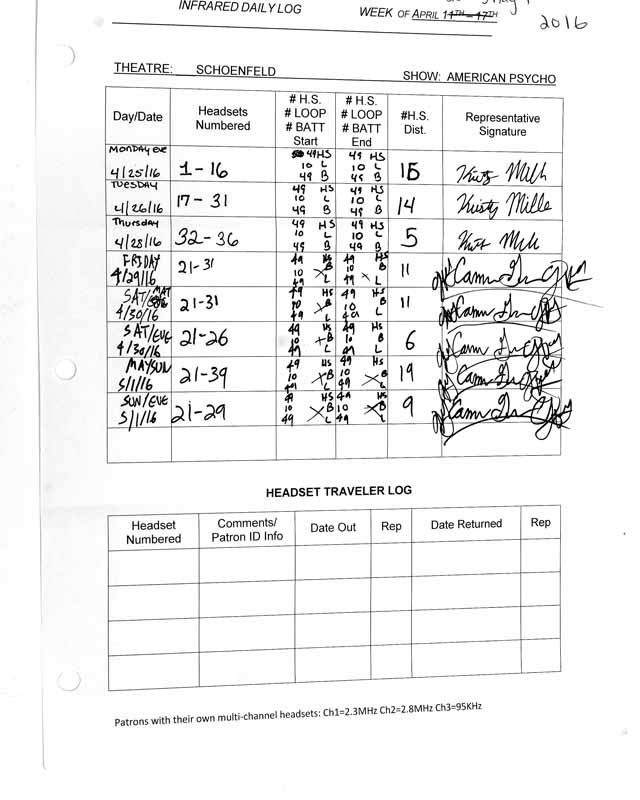 INFRARED DAILY LOG WEEK OF APRIL 11TH - 17TH May 1
2016
THEATRE: SCHOENFELD SHOW: AMERICAN PSYCHO
Day/Date Headsets Numbered # H.S. # LOOP # BATT Start # H.S. # LOOP # BATT End #H.S. Dist. Representative Signature
MONDAY EVE 4/25/16 1-16 49 HS 10 L 49 B 49 HS 10 L 49 B 15
TUESDAY 4/26/16 17-31 49 HS 10 L 49 B 49 HS 10 L 49 B 14 Kristy Mille
Thursday 4/28/16 32-36 49 HS 10 L 49 B 49 HS 10 L 49 B 5
FRIDAY 4/29/16 21-31 49 HS 10 B 49 L 49 HS 10 B 49 L 11
SAT/MAT 4/30/16 21-31 49 HS 10 B 49 L 49 HS 10 B 49 L 11
SAT/EVE 4/30/16 21-26 49 HS 10 B 49 L 49 HS 10 B 49 L 6
MAYSUN 5/1/16 21-39 49 HS 10 B 49 L 49 HS 10 B 49 L 19
SUN/EVE 5/1/16 21-29 49 HS 10 B 49 L 49 HS 10 B 49 L 9
HEADSET TRAVELER LOG
Headset Numbered Comments/ Patron ID Info Date Out Rep Date Returned Rep
Patrons with their own multi-channel headsets: Ch1=2.3MHz Ch2=2.8MHz Ch3=95KHz